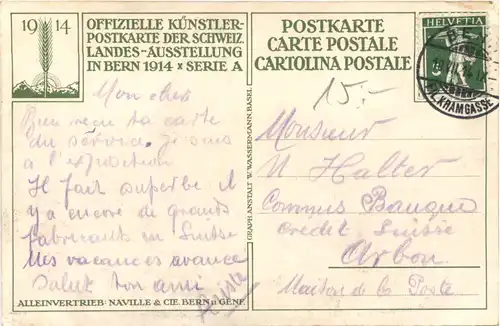 1914
OFFIZIELLE KÜNSTLER-
POSTKARTE DER SCHWEIZ.
LANDES-AUSSTELLUNG
IN BERN 1914 × SERIE A
Mon cher
Bien reçu ta carte
du service. je suis
à l'exposition
Il fait superbe il
y a encore de grands
fabricants en Suisse
Mes vacances avance
Salut ton ami
ALLEINVERTRIEB: NAVILLE & CIE. BERN U GENF
GRAPH. ANSTALT W. WASSERMANN, BASEL
POSTKARTE
CARTE POSTALE
CARTOLINA POSTALE
HELVETIA
5
KRAMGASSE
15.-
Monsieur
N Halter
Commus Banque
Credit Suisse
Arbon
Maison de la Poste